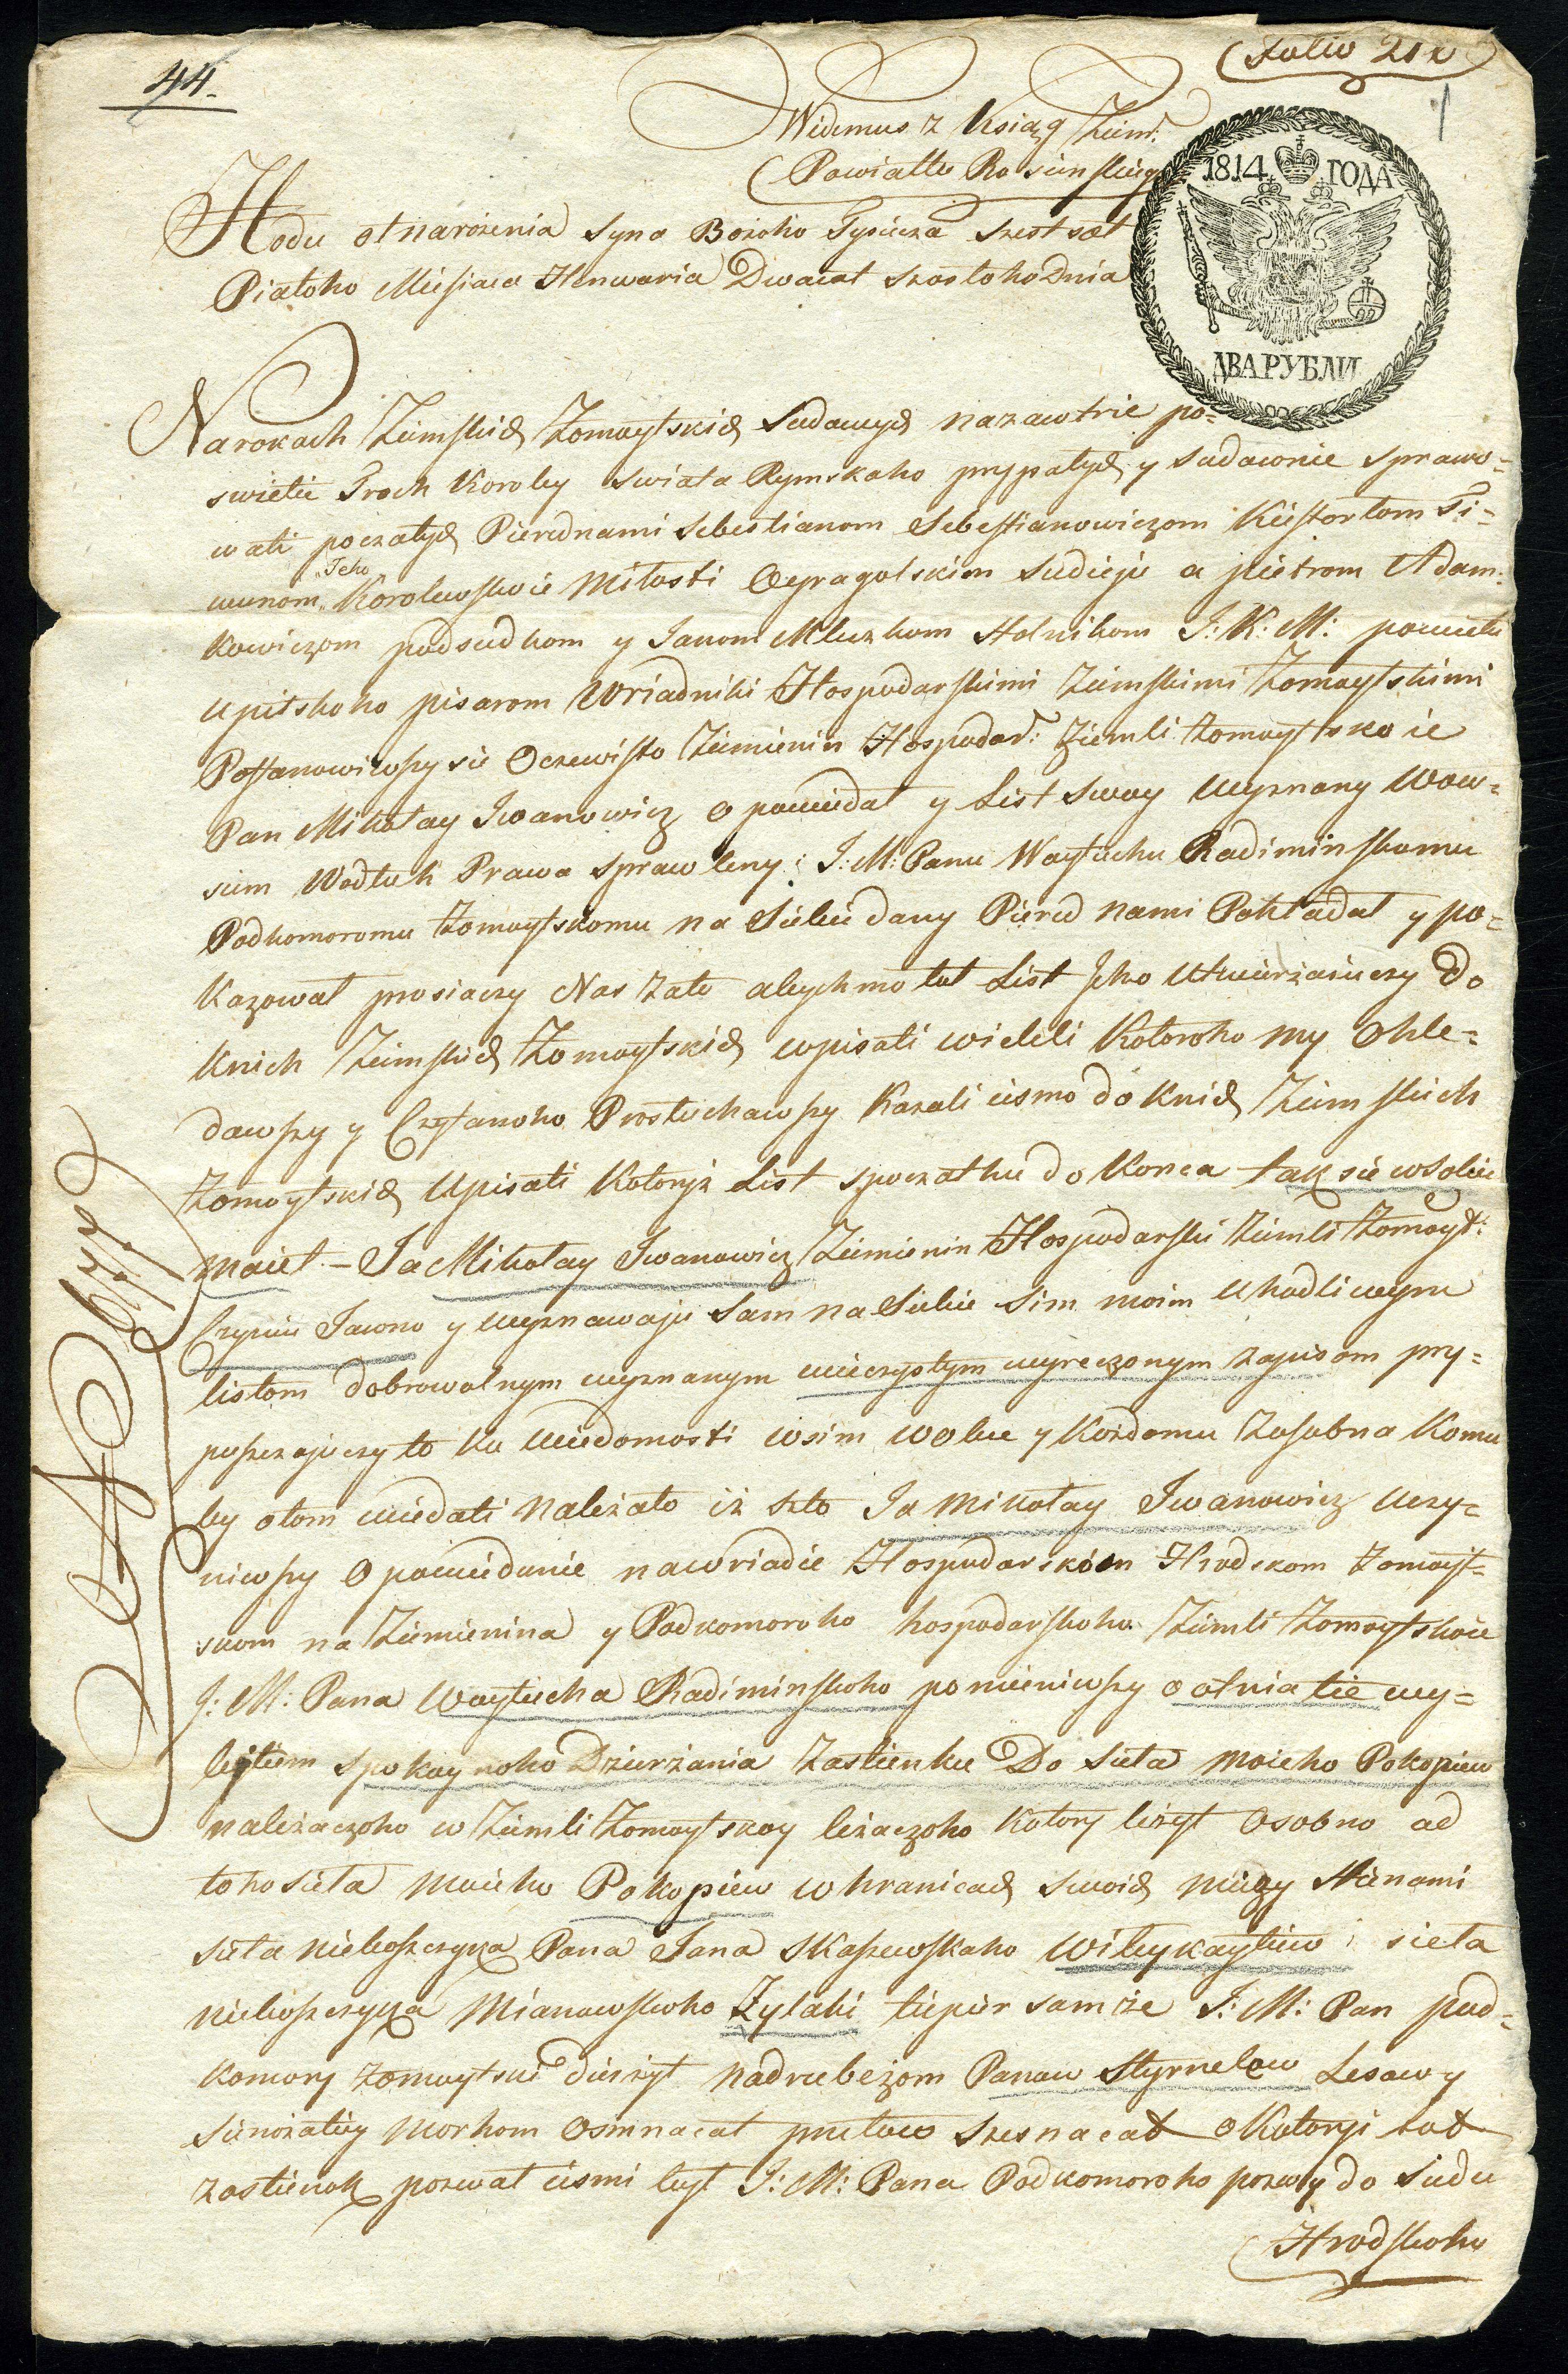 44.
Folio 21
Widimus z Ksiąg Ziem:
Powiatu Rosieńskiego
1814 ГОДА
ДВА РУБЛИ
Hodu ot narożenia Syna Bożoho Tysiecza szest sot
Piatoho Miesiaca Henwaria Dwacat szostoho Dnia
Na rokach Ziemskich Żomoytskich sudowych nazawtrie po=
swietie Troch Koroley swiata Rymskaho prypałych y sudownie sprawo=
wati poczatych Piered nami Sebestianom Sebestianowiczom Kiestortom Ti=
wunom „Jeho Korolewskoie Miłosti Oyragolskim Sudieju a Pietrom Adam:
kowiczom podsudkom y Janom Mleczkom Stolnikom J: K: M: powietu
Upitskoho pisarom Wriadniki Hospodarskimi Ziemskimi Żomoytskimi
Postanowiwszy sie Oczewisto Ziemienin Hospodar: Ziemli Żomoytskoie
Pan Mikołay Iwanowicz opowiedał y List swoy wyznany wow=
siem wodłuh Prawa sprawleny J: M: Panu Woytiechu Radiminskomu
Podkomoromu Żomoytskomu na siebie dany Piered nami Pokładał y po=
kazował prosiaczy Nas zato abychmo tot List Jeho utwierżaiuczy do
Knich Ziemskich Żomoytskich wpisati wieleli Kotoroho my ohle=
dawszy y Czytanoho Prosłuchawszy kazali iesmo do Knich Ziemskich
Żomoytskich upisati Kotoryż List spoczatku do konca tak sie w sobie
maiet – Ja Mikołay Iwanowicz Ziemienin Hospodarski Ziemli Żomoyt:
Czyniu Jawno y wyznawaju sam na siebie sim moim uhodliwym
listom dobrowolnym wyznanym wieczystym wyreczonym zapisom pry=
puszczajuczy to ku wiedomosti wsim wobec y każdomu zosobna komu
by o tom wiedati należało iż szto Ja Mikołay Iwanowicz uczy=
niwszy opowiedanie na wriadie Hospodarskom Hrodskom Żomoyt=
skom na Ziemienina y Podkomoroho hospodarskoho Ziemli Żomoytskoie
J: M: Pana Woytiecha Radiminskoho pomieniwszy o otniatie wy=
bytiem spokoynoho Dzierżania zastienku Do sieła moieho Pokopiew
należaczoho w Ziemli Żomoytskoy leżaczoho kotory leżyt osobno od
toho sieła moieho Pokopiew w hranicach swoich miezy stienami
sieła nieboszczyka Pana Jana Skaszewskaho Wileykaytiew sieła
nieboszczyka Mianowskoho Zylaki tiepier sam że J: M: Pan pod=
komory Żomoytski dierżyt nad rubeżom Panow Styrnelow Lesow y
sienożatiey morhow osmnacat prutow szesnacat o kotoryi tot
zastienok pozwał iesmi był J: M: Pana Podkomoroho pozwy do sudu
Hrodskoho